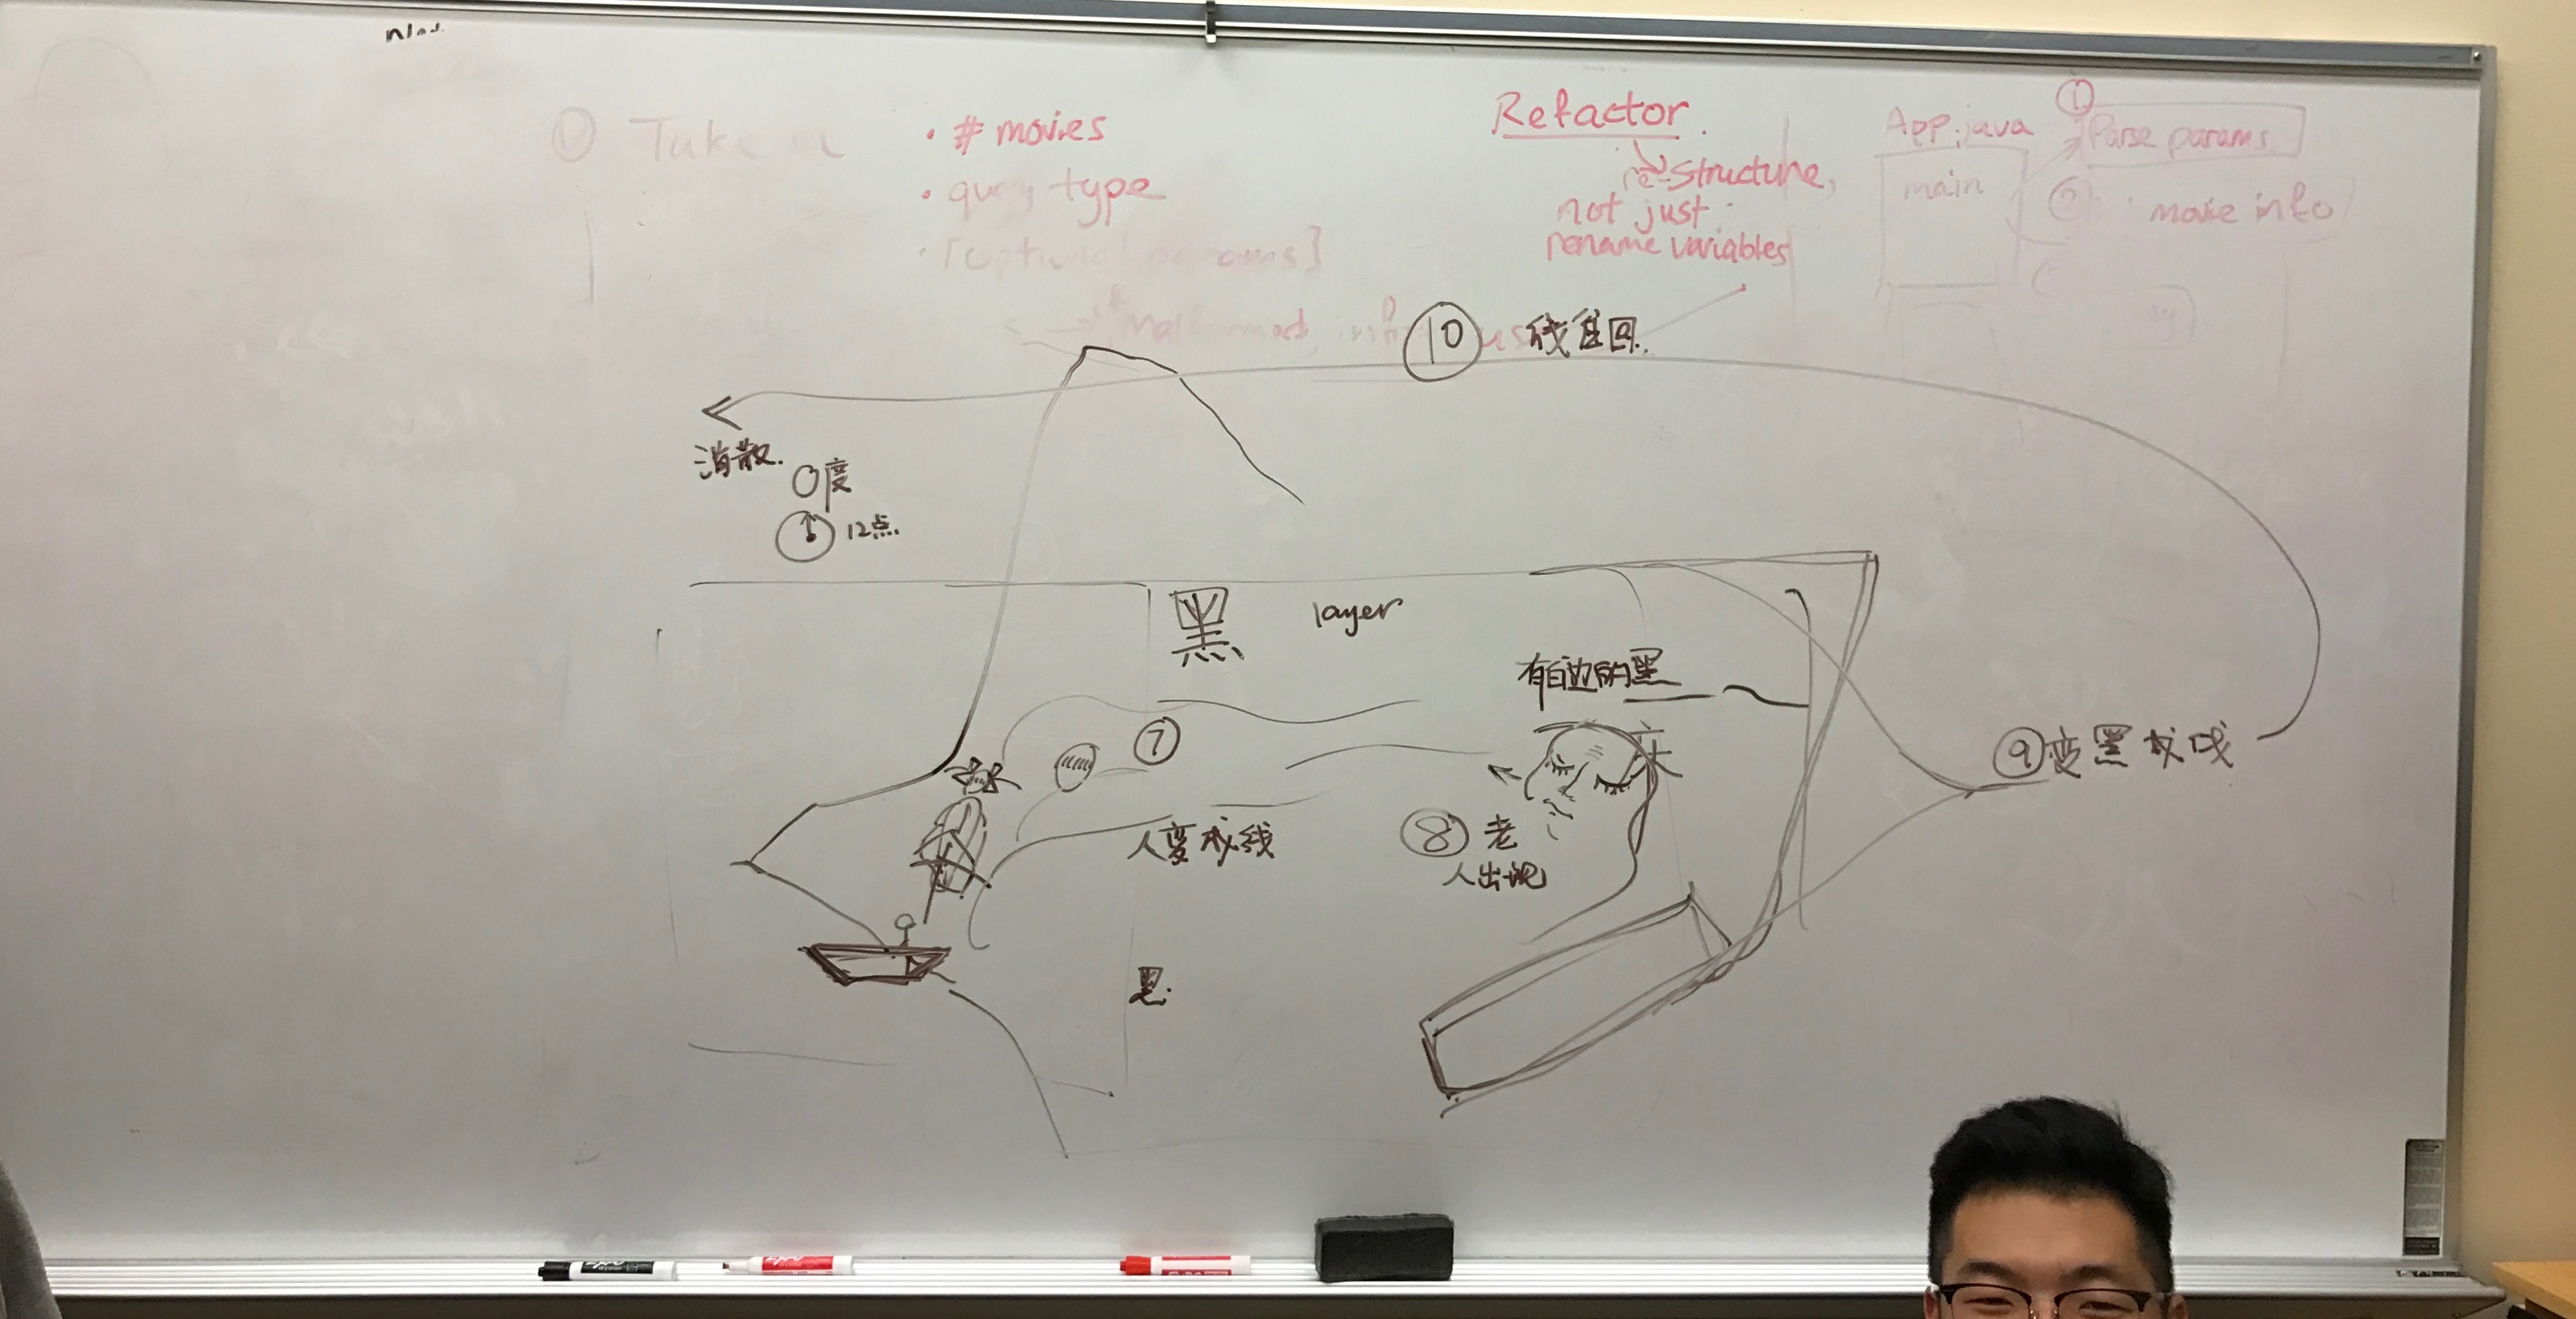 ① Take in
• # movies
• query type
• [optional params]
Malformed,
Refactor.
re-structure,
not just
rename variables
App.java
main
①
Parse params
②
movie info
⑩
消散.
0度
12点.
黑
layer
有白边的黑
⑦
人变成线
⑧ 老
人出现
⑨变黑成线
黑.